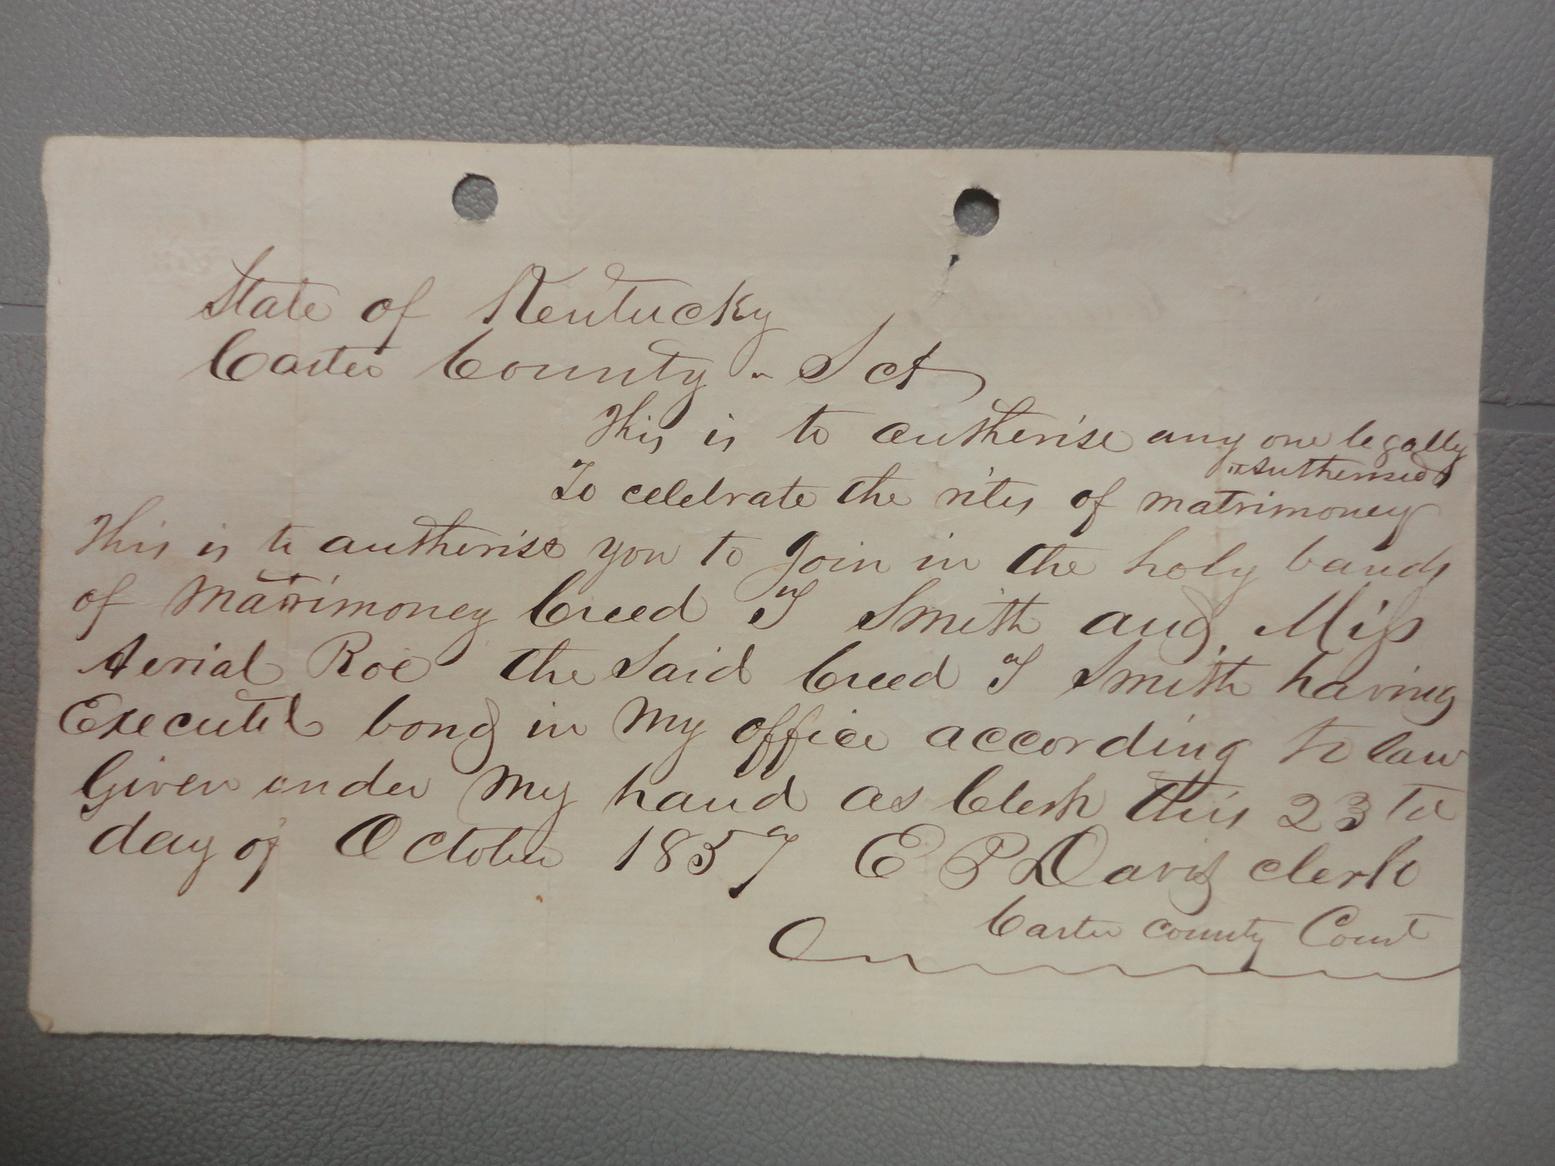 State of Kentucky
Carter County - Sct
This is to autherise any one legally
autherised
To celebrate the rites of matrimoney
This is to autherise you to Join in the holy bands
of Matrimoney Creed T Smith and Miss
Aerial Roe the Said Creed T Smith having
Executed bond in My office according to law
Given under My hand as Clerk this 23 td
day of October 1857 E P Davis clerk
Carter county Court